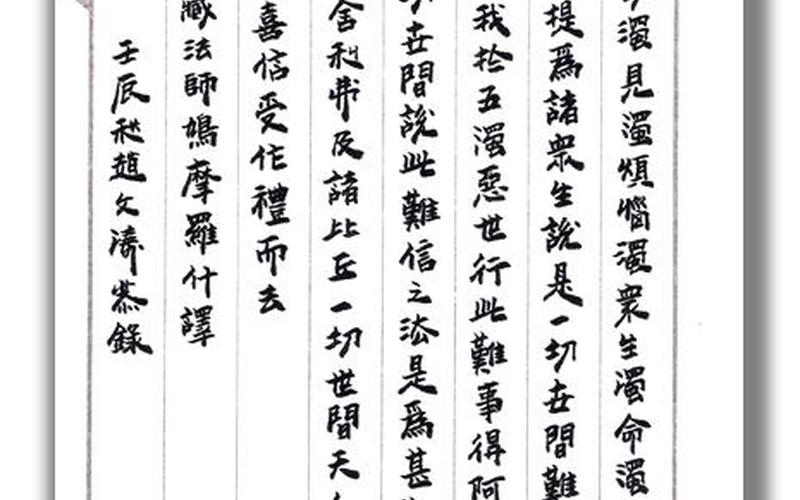 濁見濁煩惱濁衆生濁命濁
提爲諸衆生說是一切世間難
我於五濁惡世行此難事得阿
切世間說此難信之法是爲甚
舍利弗及諸比丘一切世間天
喜信受作禮而去
藏法師鳩摩羅什譯
壬辰秋趙文濤恭錄